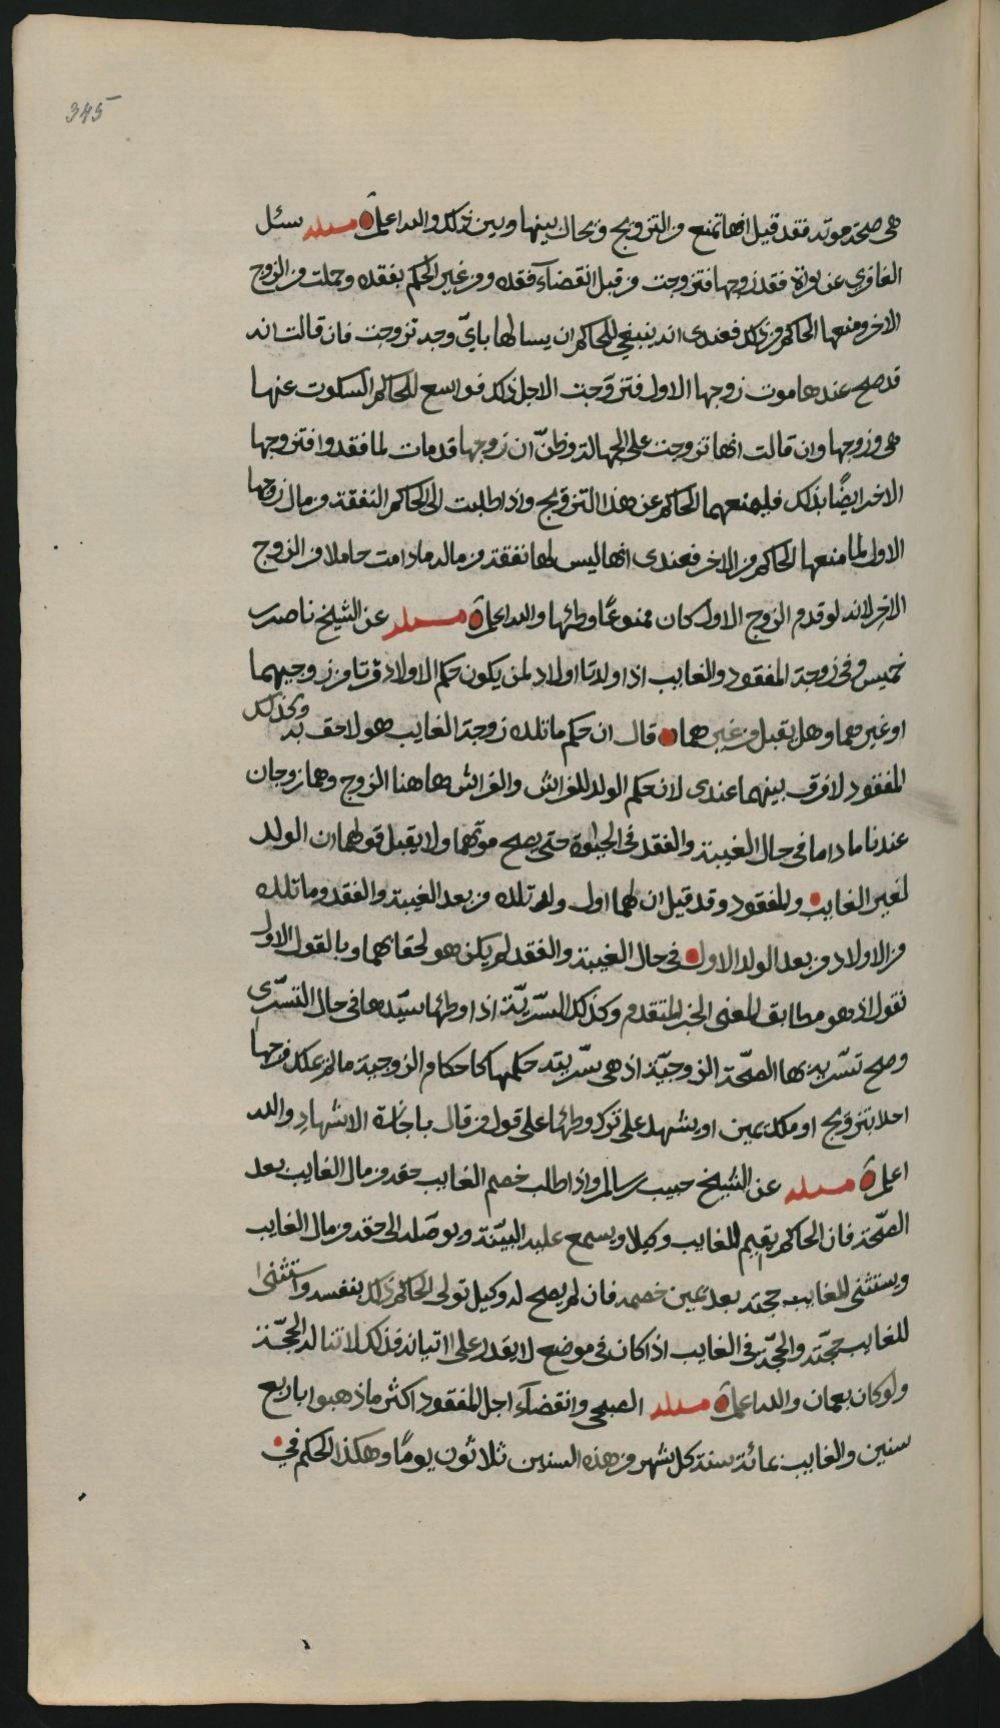 345
هي صحة موته فقد قيل انها تمنع من التزويج ويحال بينها وبين ذلك والله اعلم مسئلة سئل
الغافري عن امراة فقد زوجها فتزوجت من قبل انقضآء فقده ومن غير الحكم بفقده وحملت من الزوج
الاخر ومنعها الحاكم من ذلك فعندى انه ينبغي للحاكم ان يسالها بايّ وجه تزوجت فان قالت انه
قد صح عندها موت زوجها الاول فتزوّجت الاجل ذلك فواسع للحاكم السكوت عنها
هى وزوجها وان قالت انها تزوجت على الجهالة وظنّ ان زوجها قد مات لما فقد وا فتزوجها
الاخر ايضًا بذلك فليمنعهما الحاكم عن هذا التزويج واذا طلبت الى الحاكم النفقة من مال زوجها
الاول لما منعها الحاكم من الاخر فعندى انها ليس لها نفقة من ماله ما دامت حاملا من الزوج
الاخر لانه لو قدم الزوج الاول كان ممنوعًا وطئها والله اعلم مسئلة عن الشيخ ناصر بن
خميس وفى زوجة المفقود والغايب اذا ولدتا اولاد لمن يكون حكم الاولاد من زوجيهما
او غيرهما وهل يقبل من غيرهما قال ان حكم ما تلده زوجة الغايب هو لاحق به وكذلك
المفقود لا فرق بينهما عندى لان حكم الولد للفراش والفراش هاهنا الزوج وهما زوجان
عندنا ما داما في حال الغيبة والفقد في الحيوة حتى يصح موتهما ولا يقبل قولهما ان الولد
لغير الغايب والمفقود وقد قيل ان لهما اول ولد تلده من بعد الغيبة والفقد وما تلده
من الاولاد من بعد الولد الاول في حال الغيبة والفقد لم يكن هو لحقا بهما وبالقول الاول
نقول اذ هو مطابق لمعنى الخبر المتقدم وكذلك السّريّة اذا وطئها سيّدها في حال التسرّي
وصح تسّريه بها الصحّة الزوجيّة اذ هى سّريته حكمها كاحكام الزوجية ما لم يملك فرجها
احدا بتزويج او ملك يمين او يشهد على ترك وطئها على قول من قال باجازة الاشهاد والله
اعلم مسئلة عن الشيخ حبيب بن سالم واذا طلب خصم الغايب حقه من مال الغايب بعد
الصحّة فان الحاكم يقيم للغايب وكيلا ويسمع عليه البيّنة ويوصّله الى حقه من مال الغايب
ويستثنى للغايب حجته بعد يمين خصمه فان لم يصح له وكيل تولى الحاكم ذلك بنفسه واستثنى
للغايب حجّته والحجّة في الغايب اذا كان في موضع لا يقدر على اتيانه فذلك لا تناله الحجّة
ولو كان بعمان والله اعلم مسئلة الصبحي وانقضآء اجل المفقود اكثر ما ذهبوا باربع
سنين والغايب بمائة سنة كل شهر من هذه السنين ثلاثون يومًا وهكذا الحكم في